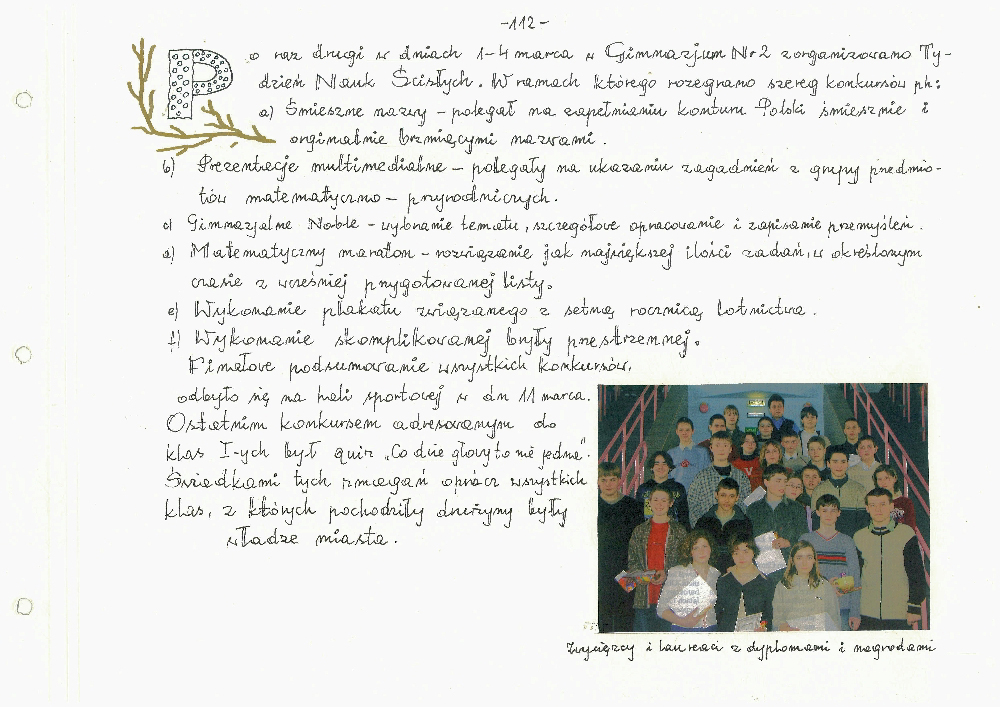 -112-
Po raz drugi w dniach 1-4 marca w Gimnazjum Nr 2 zorganizowano Ty-
dzień Nauk Ścisłych. W ramach którego rozegrano szereg konkursów ph:
a) Śmieszne nazwy - polegał na zapełnianiu konturu Polski śmiesznie i
orginalnie brzmiącymi nazwami.
b) Prezentacje multimedialne - polegały na ukazaniu zagadnień z grupy przedmio-
tów matematyczno - przyrodniczych.
c) Gimnazjalne Noble - wybranie tematu, szczegółowe opracowanie i zapisanie przemyśleń.
d) Matematyczny maraton - rozwiązanie jak największej ilości zadań, w określonym
czasie z wcześniej przygotowanej listy.
e) Wykonanie plakatu związanego z setną rocznicą lotnictwa.
f) Wykonanie skomplikowanej bryły przestrzennej.
Finałowe podsumowanie wszystkich konkursów,
odbyło się na hali sportowej w dn 11 marca.
Ostatnim konkursem adresowanym do
klas I-ych był quiz „Co dwie głowy to nie jedna".
Świadkami tych zmagań oprócz wszystkich
klas, z których pochodziły drużyny były
władze miasta.
Zwycięzcy i laureaci z dyplomami i nagrodami